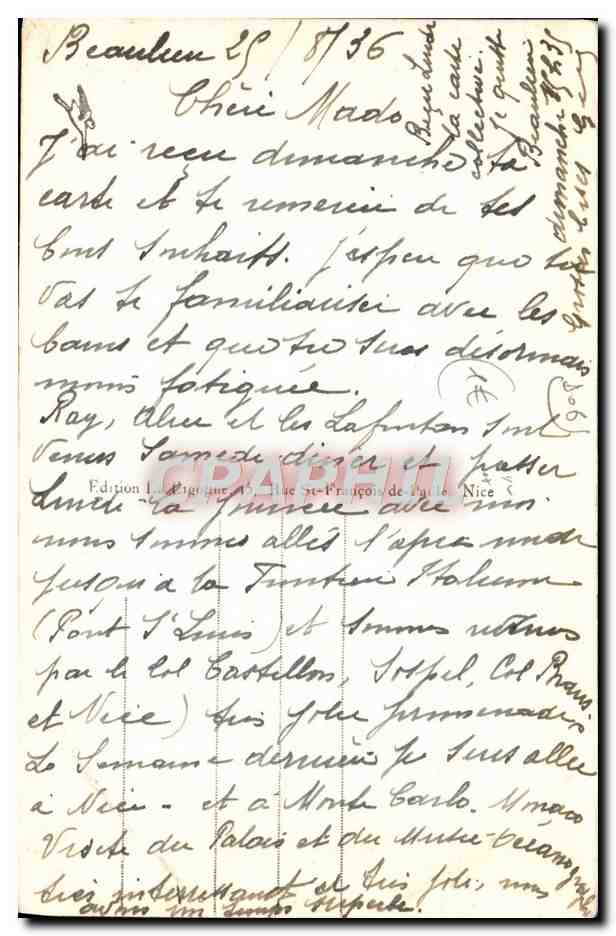 Beaulieu 25/8/36
Chère Mado
J'ai reçu dimanche ta
carte et te remercie de tes
bons souhaits. J'espère que tu
vas te familiariser avec les
bains et que tu seras désormais
moins fatiguée.
Ray, Alice et les Lafontan sont
venus Samedi dîner et passer
Edition La Cigogne, 15, Rue St-François-de-Paule, Nice
CPARAMA
la journée avec moi
nous sommes allés l'après midi
jusqu'à la Frontière Italienne
(Pont St Louis) et sommes revenus
par le Col Castillon, Sospel, Col Braus
et Nice) très jolie promenade
La Semaine dernière je suis allée
à Nice - et à Monte Carlo. Monaco
Visite du Palais et du Musée Océanographique
très intéressant et très joli, nous
avons un temps superbe.
Reçu Lundi
ta carte
collective
je quitte
Beaulieu
dimanche 15h35
Gustave
1€
806